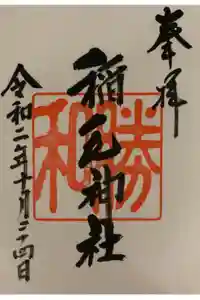 奉拝
勝和
稲毛神社
令和二年十月二十四日